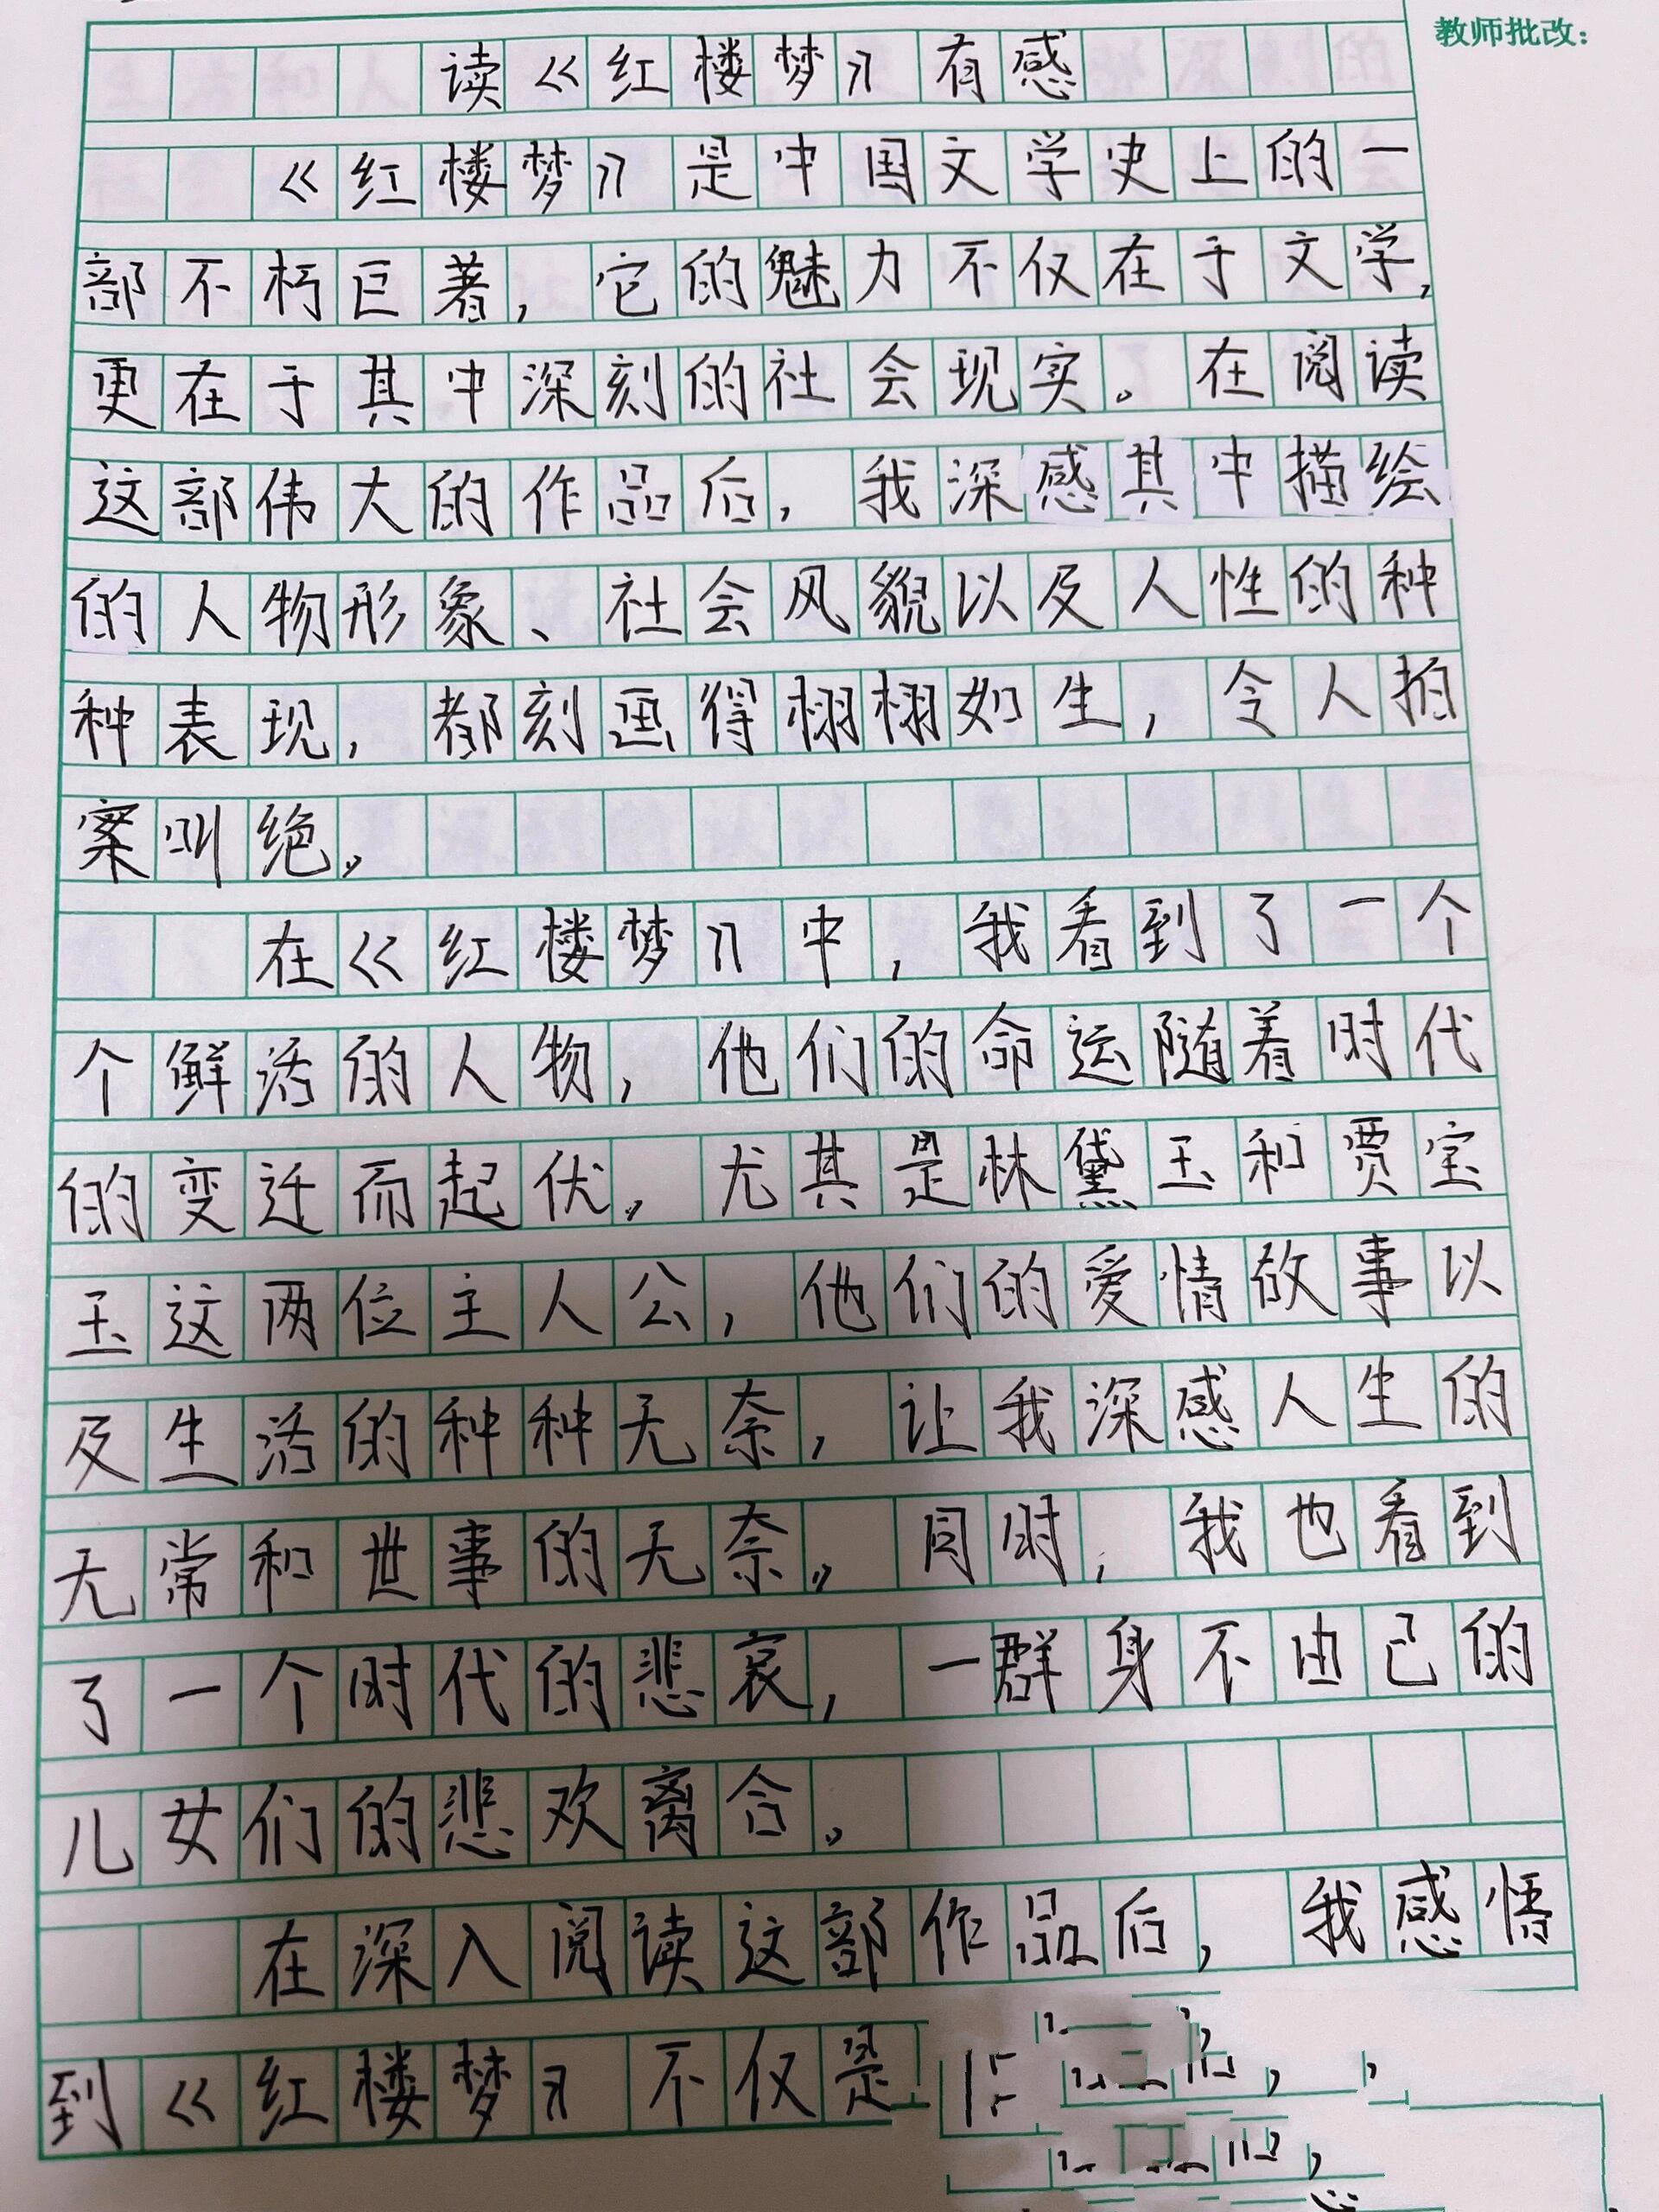 教师批改:
读《红楼梦》有感
《红楼梦》是中国文学史上的一
部不朽巨著,它的魅力不仅在于文学,
更在于其中深刻的社会现实。在阅读
这部伟大的作品后,我深感其中描绘
的人物形象、社会风貌以及人性的种
种表现,都刻画得栩栩如生,令人拍
案叫绝。
在《红楼梦》中,我看到了一个
个鲜活的人物,他们的命运随着时代
的变迁而起伏。尤其是林黛玉和贾宝
玉这两位主人公,他们的爱情故事以
及生活的种种无奈,让我深感人生的
无常和世事的无奈。同时,我也看到
了一个时代的悲哀,一群身不由己的
儿女们的悲欢离合。
在深入阅读这部作品后,我感悟
到《红楼梦》不仅是